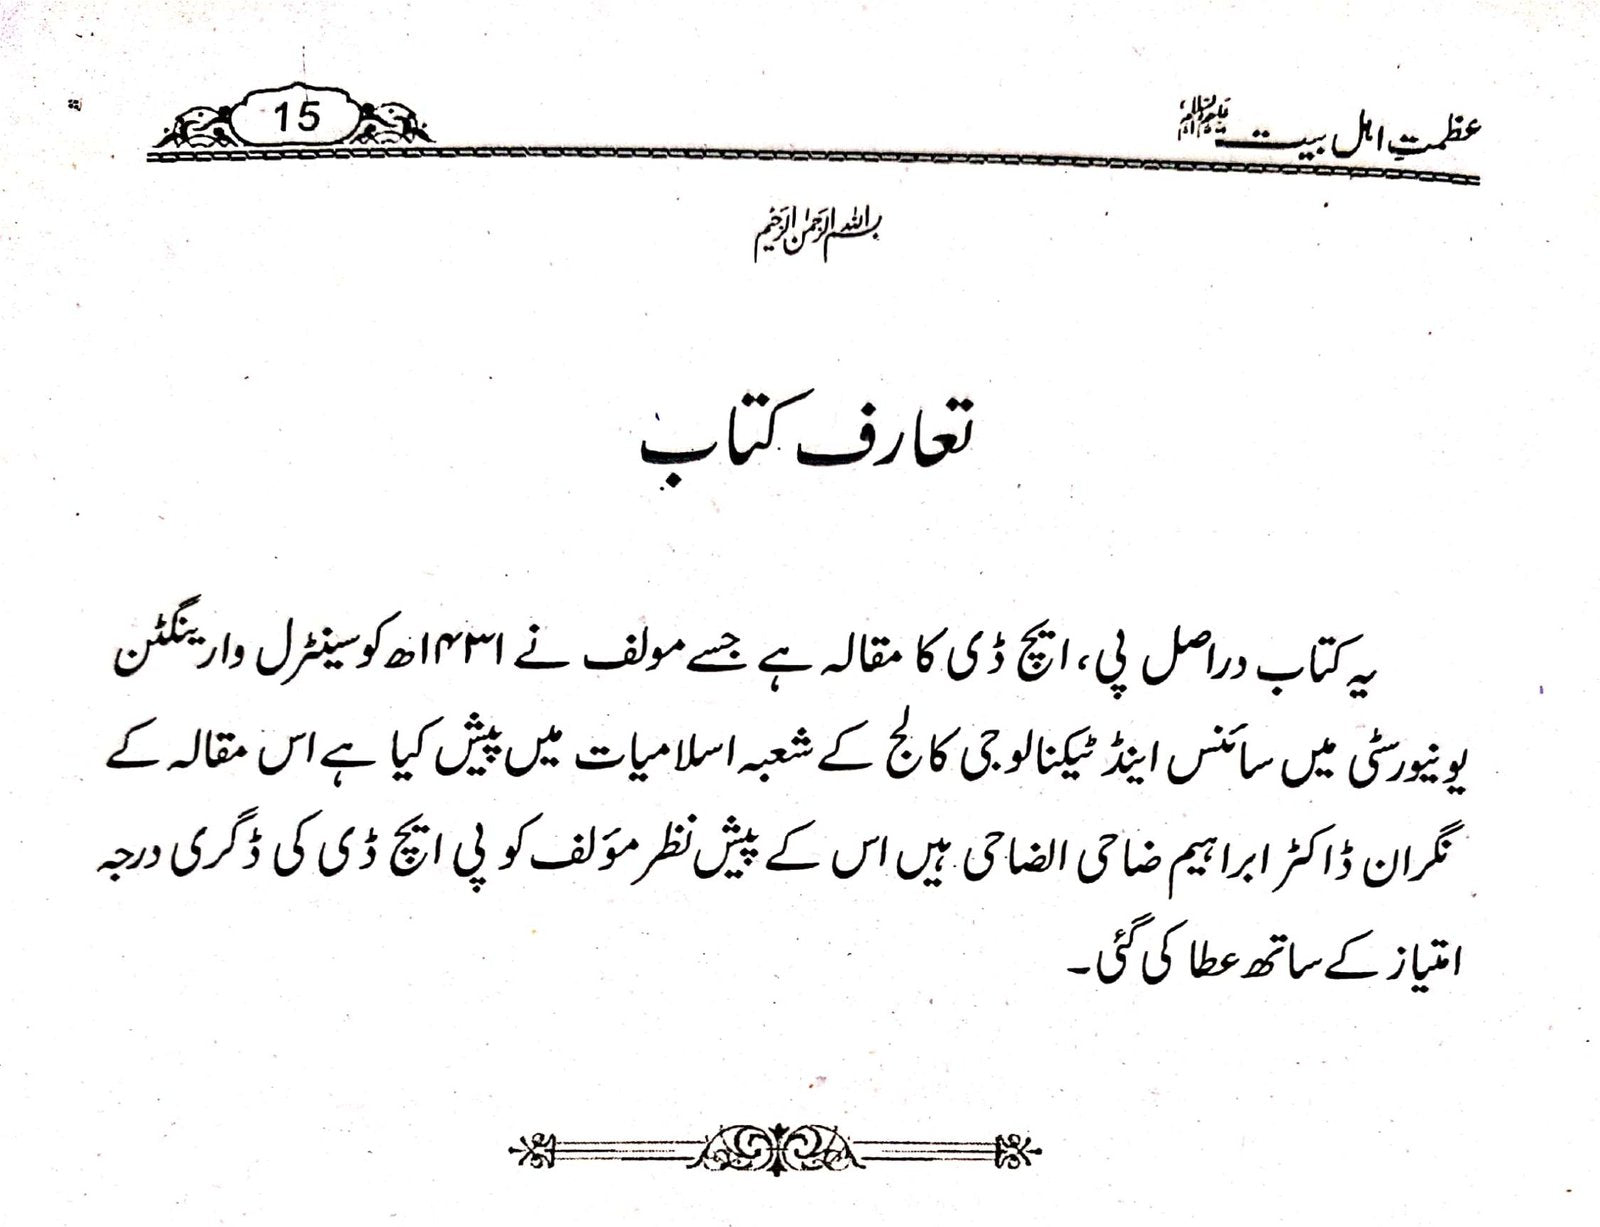 عظمتِ اہل بیت علیہم السلام
15
بسم اللہ الرحمٰن الرحیم
تعارف کتاب
یہ کتاب دراصل پی، ایچ ڈی کا مقالہ ہے جسے مولف نے ۱۴۳۱ھ کو سینٹرل وارینگٹن
یونیورسٹی میں سائنس اینڈ ٹیکنالوجی کالج کے شعبہ اسلامیات میں پیش کیا ہے اس مقالہ کے
نگران ڈاکٹر ابراہیم ضاحی الضاحی ہیں اس کے پیش نظر مؤلف کو پی ایچ ڈی کی ڈگری درجہ
امتیاز کے ساتھ عطا کی گئی۔